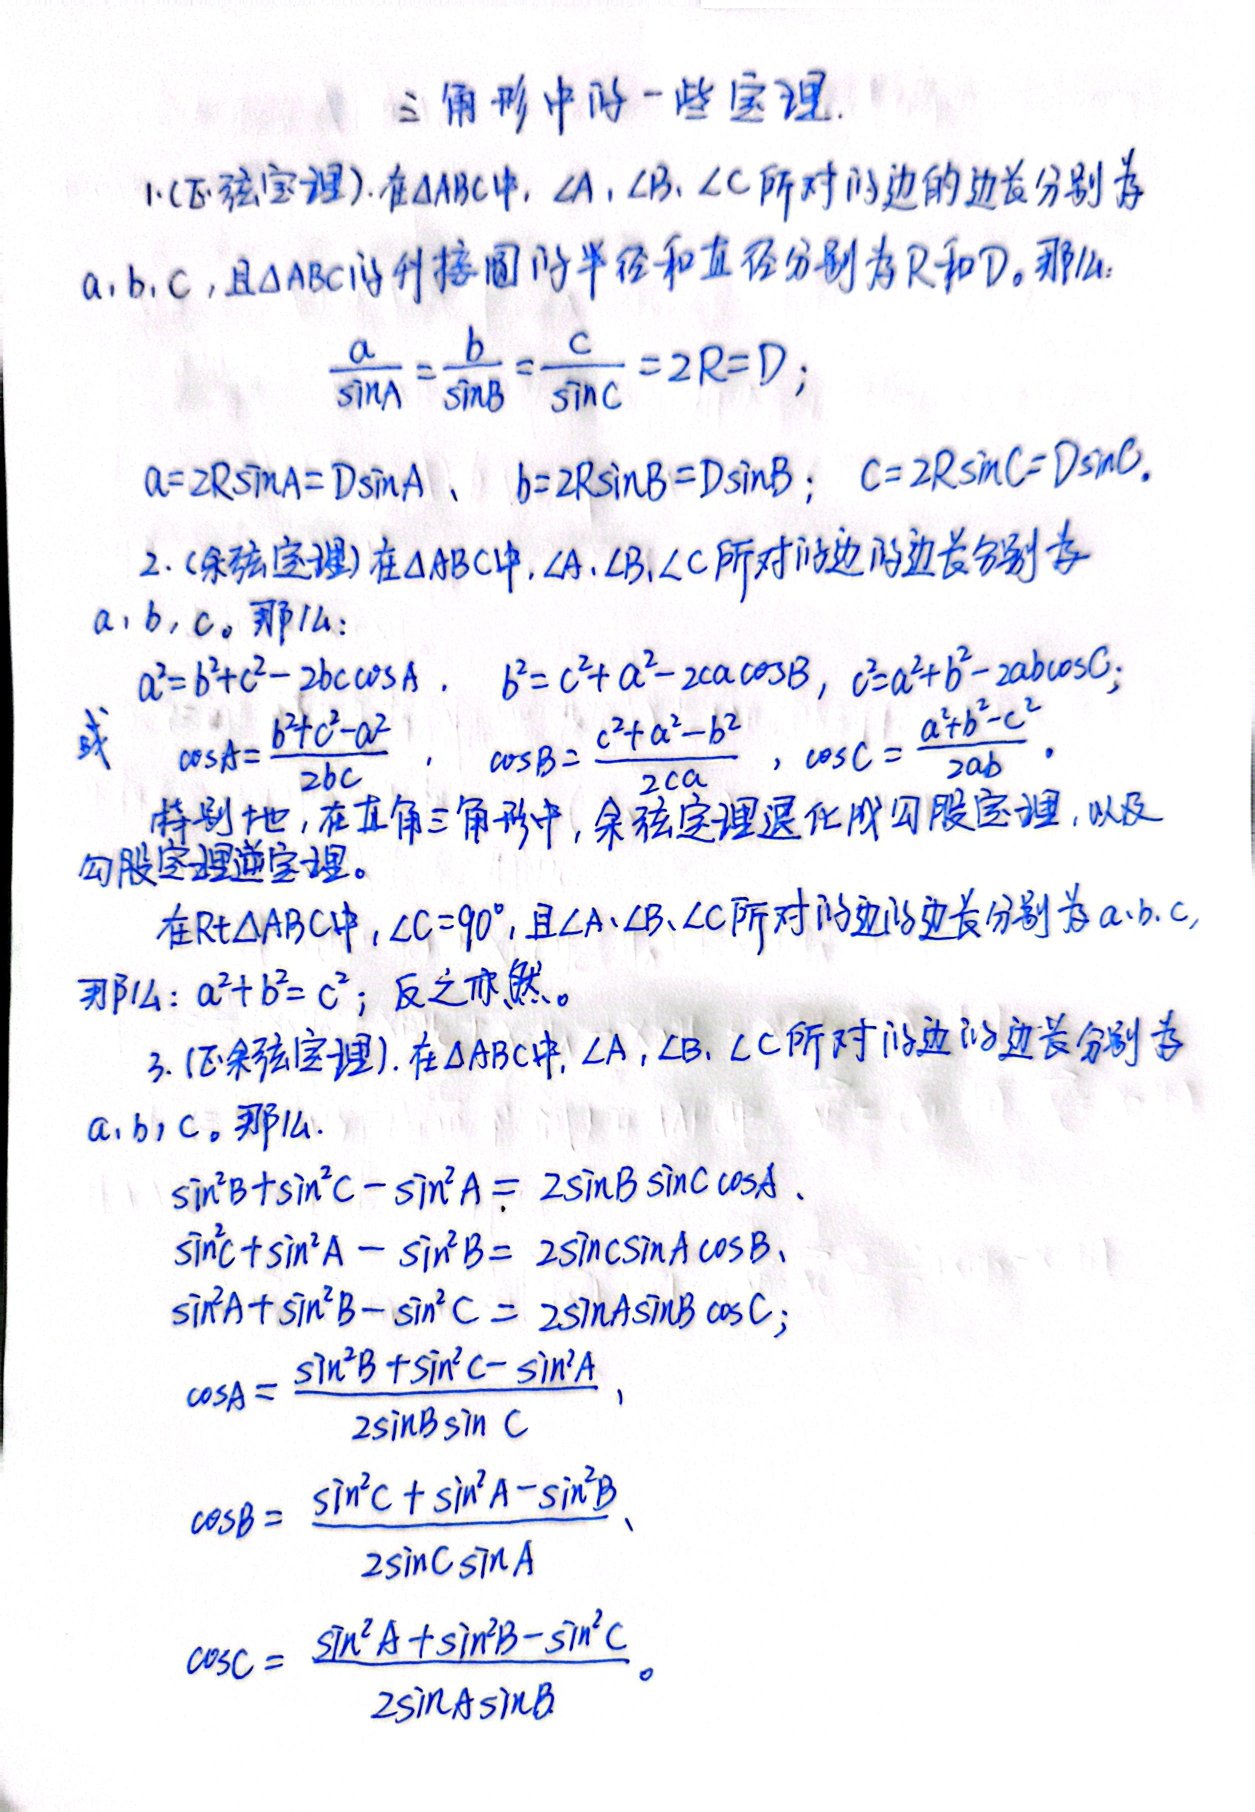 三角形中的一些定理.
1.(正弦定理).在△ABC中,∠A、∠B、∠C所对的边的边长分别为
a、b、c,且△ABC的外接圆的半径和直径分别为R和D。那么:
a/sinA = b/sinB = c/sinC = 2R = D;
a=2RsinA=DsinA、 b=2RsinB=DsinB; c=2RsinC=DsinC.
2.(余弦定理)在△ABC中,∠A、∠B、∠C所对的边的边长分别为
a、b、c。那么:
a²=b²+c²-2bccosA、 b²=c²+a²-2cacosB, c²=a²+b²-2abcosC;
或 cosA=(b²+c²-a²)/2bc、 cosB=(c²+a²-b²)/2ca, cosC=(a²+b²-c²)/2ab。
特别地,在直角三角形中,余弦定理退化成勾股定理,以及
勾股定理逆定理。
在Rt△ABC中,∠C=90°,且∠A、∠B、∠C所对的边的边长分别为a、b、c,
那么:a²+b²=c²;反之亦然。
3.(正余弦定理).在△ABC中,∠A,∠B、∠C所对的边的边长分别为
a、b、c。那么.
sin²B+sin²C-sin²A=2sinBsinCcosA、
sin²C+sin²A-sin²B=2sinCsinAcosB、
sin²A+sin²B-sin²C=2sinAsinBcosC;
cosA=(sin²B+sin²C-sin²A)/2sinBsinC、
cosB=(sin²C+sin²A-sin²B)/2sinCsinA、
cosC=(sin²A+sin²B-sin²C)/2sinAsinB。